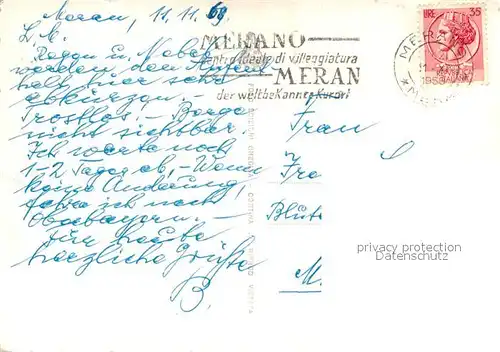 Meran, 11.11.69
L. E.
Regen u. Nebel
werden den Aufent-
halt hier sehr
abkürzen. –
Trostlos. – Berge
nicht sichtbar.
Ich warte noch
1–2 Tage ab, – Wenn
keine Änderung,
fahre ich nach
Oberbayern. –
Für heute
herzliche Grüße
B.
MERANO
centro ideale di villeggiatura
MERAN
der weltbekannte Kurort
LIRE 35
Frau
Blut
M.
privacy protection
www.ansichtskartenversand.com